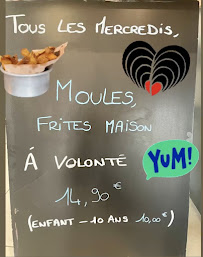 Tous les Mercredis,
Moules,
Frites Maison
Á volonté
YUM!
14,90€
(Enfant -10 ans 10,00€)